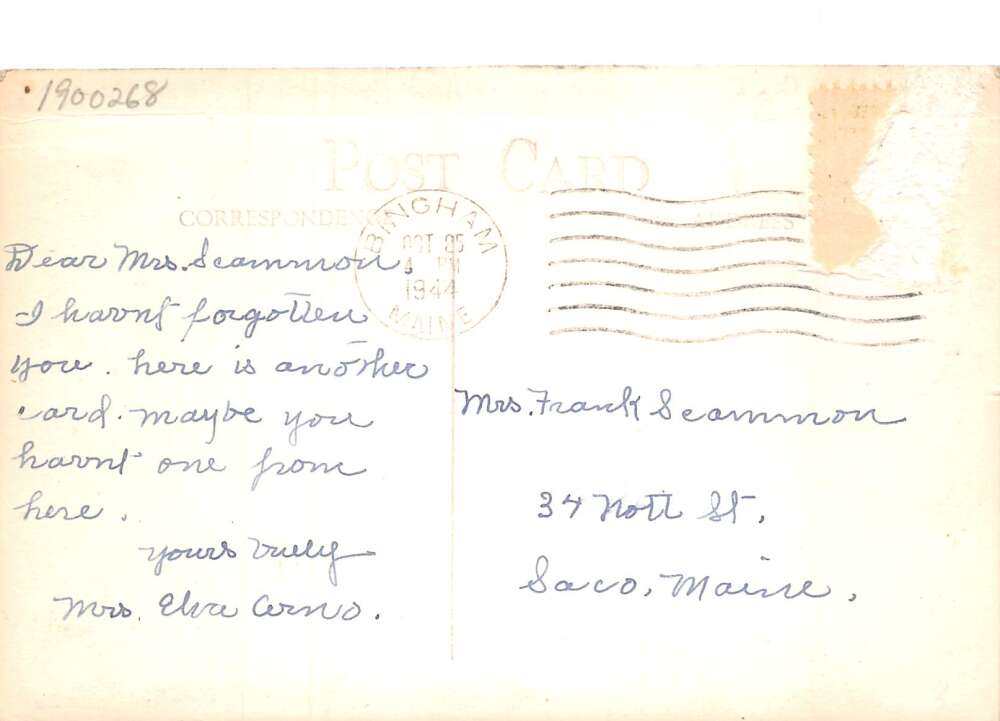 1900268
POST CARD
CORRESPONDENCE
ADDRESS
BINGHAM
OCT 25
4 PM
1944
MAINE
Dear Mrs. Scammon,
I havnt forgotten
you. here is another
card. maybe you
havnt one from
here.
yours truly
Mrs. Elva Corno.
Mrs. Frank Scammon
34 Nott St.,
Saco, Maine.